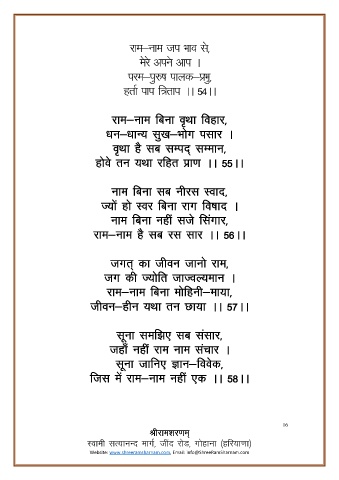 राम–नाम जप भाव से,
मेरे अपने आप ।
परम–पुरुष पालक–प्रभु,
हर्ता पाप त्रिताप ।। 54।।
राम–नाम बिना वृथा विहार,
धन–धान्य सुख–भोग पसार ।
वृथा है सब सम्पद् सम्मान,
होवे तन यथा रहित प्राण ।। 55।।
नाम बिना सब नीरस स्वाद,
ज्यों हो स्वर बिना राग विषाद ।
नाम बिना नहीं सजे सिंगार,
राम–नाम है सब रस सार ।। 56।।
जगत् का जीवन जानो राम,
जग की ज्योति जाज्वल्यमान ।
राम–नाम बिना मोहिनी–माया,
जीवन–हीन यथा तन छाया ।। 57।।
सूना समझिए सब संसार,
जहाँ नहीं राम नाम संचार ।
सूना जानिए ज्ञान–विवेक,
जिस में राम–नाम नहीं एक ।। 58।।
16
श्रीरामशरणम्
स्वामी सत्यानन्द मार्ग, जींद रोड, गोहाना (हरियाणा)
Website: www.shreeramsharnam.com, Email: info@ShreeRamSharnam.com